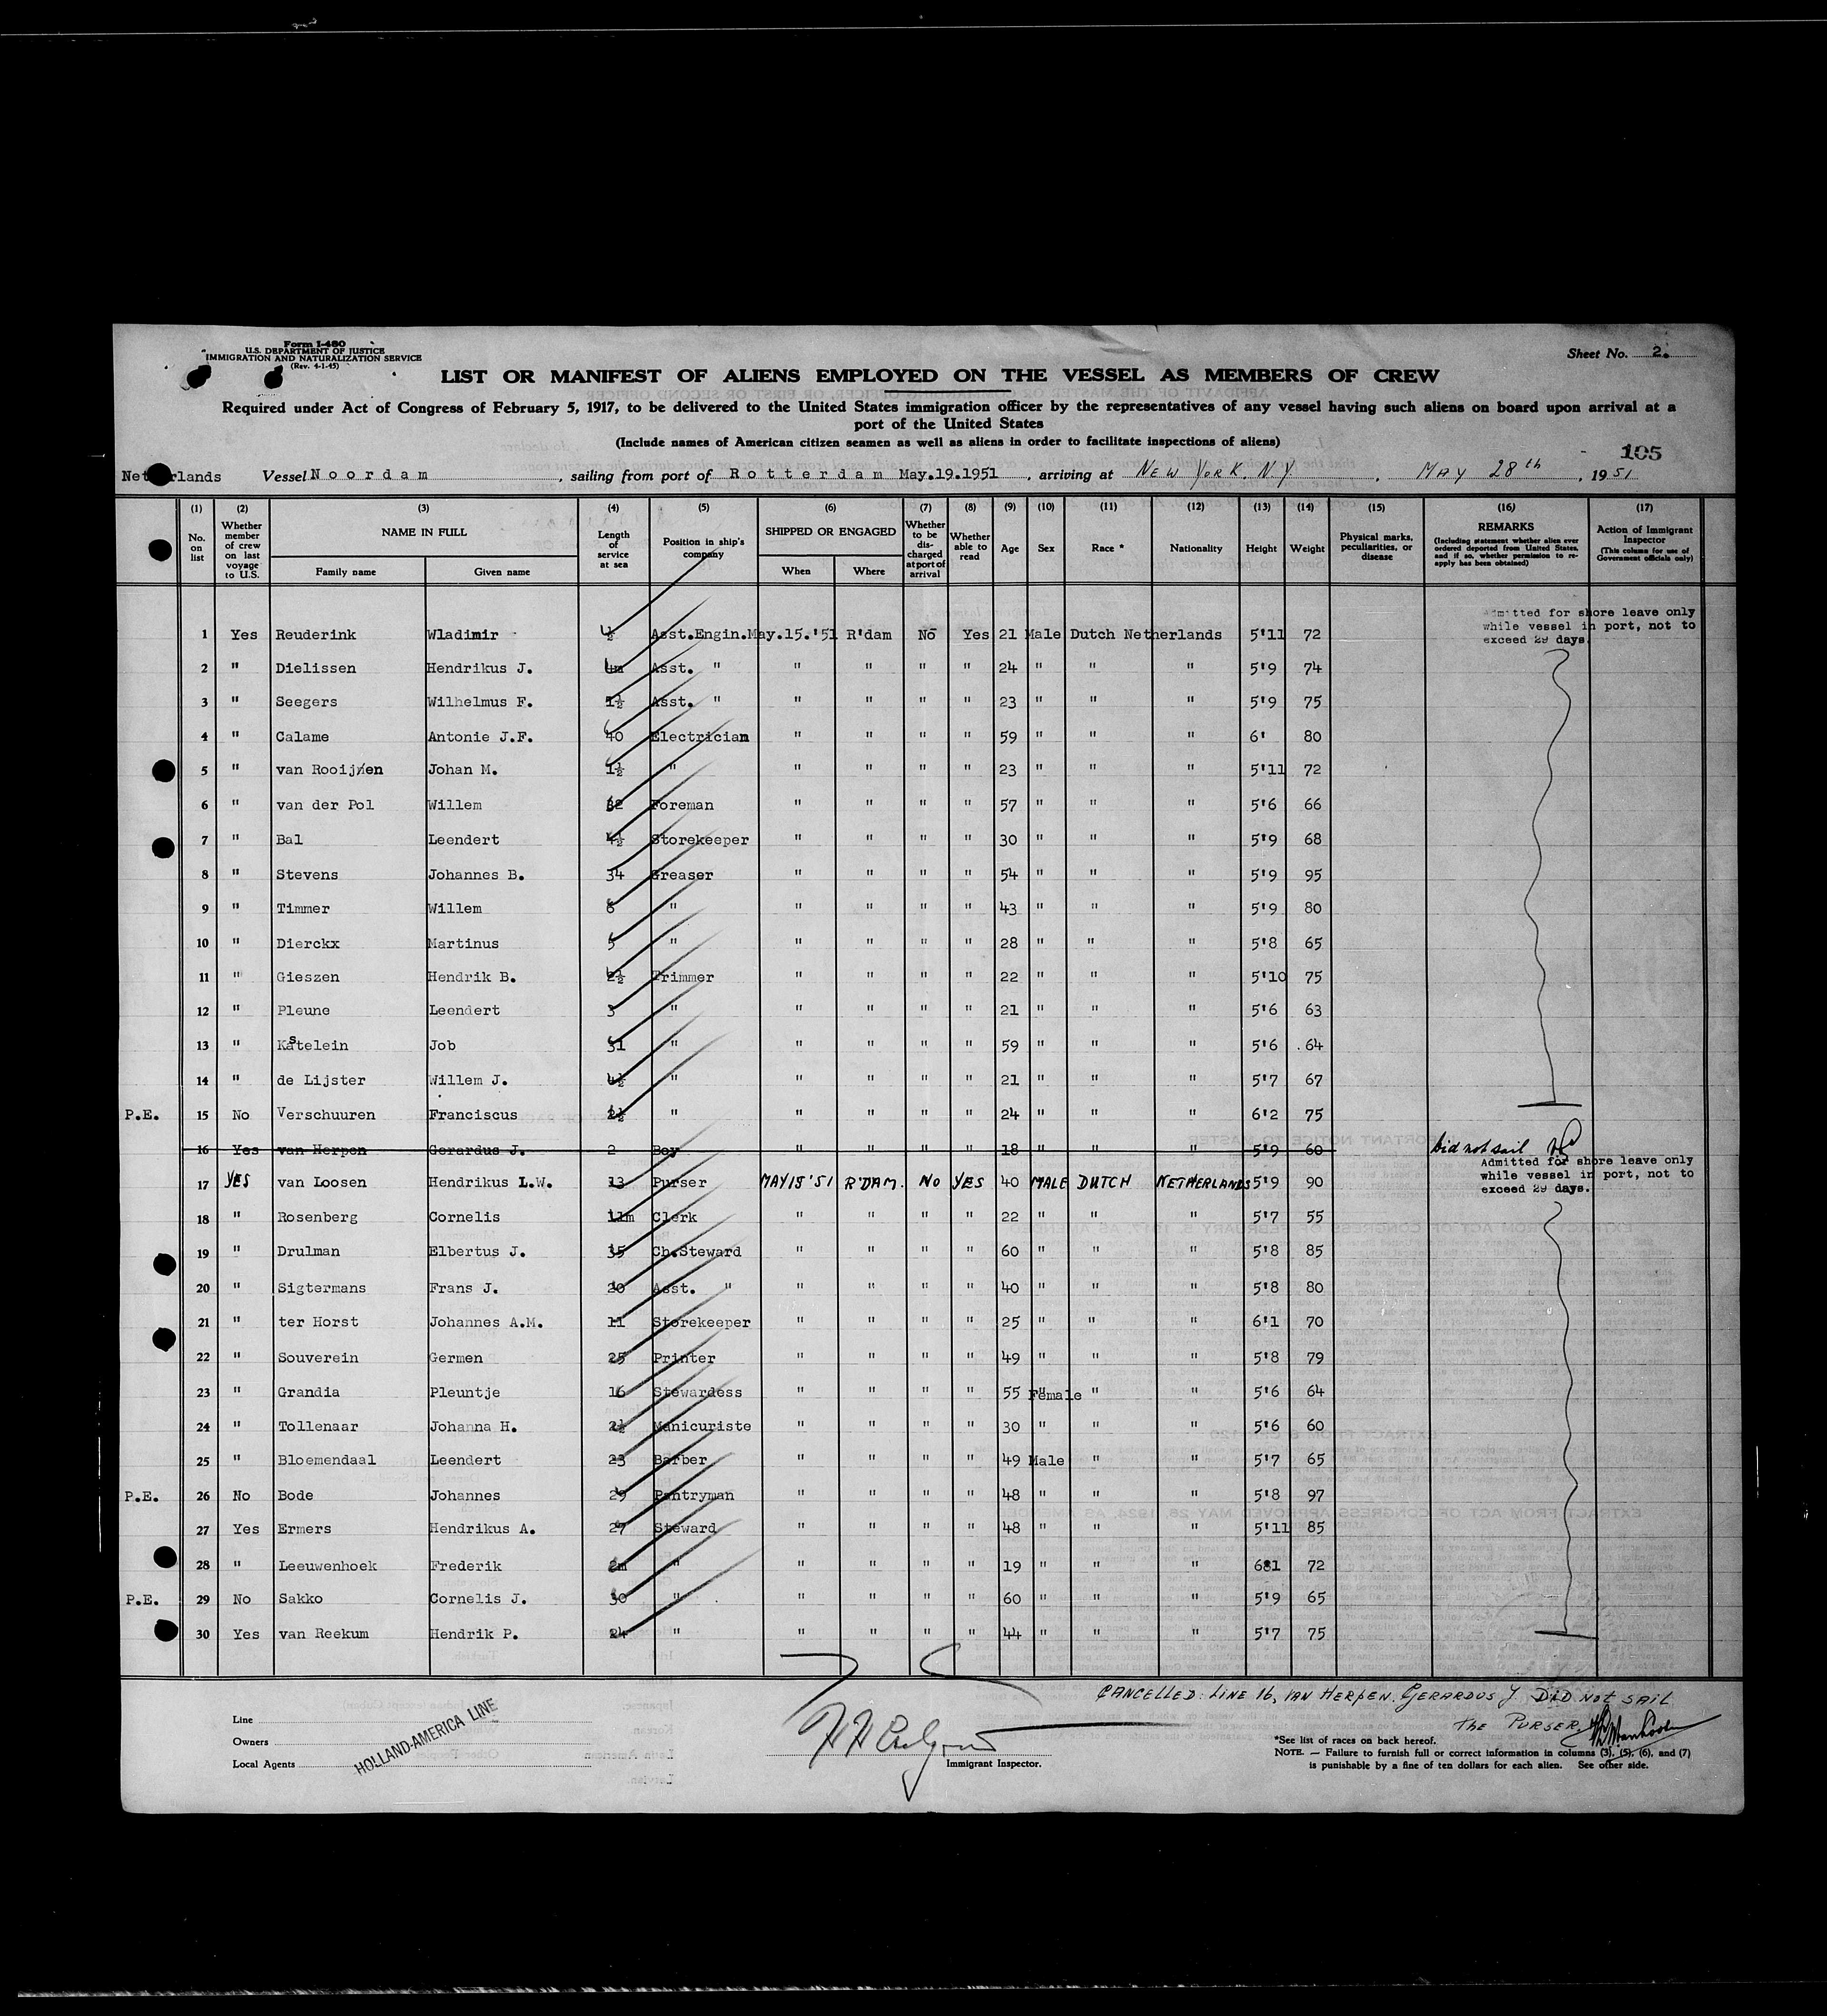 Form I-480
U.S. DEPARTMENT OF JUSTICE
IMMIGRATION AND NATURALIZATION SERVICE
(Rev. 4-1-45)
Sheet No. 2.
LIST OR MANIFEST OF ALIENS EMPLOYED ON THE VESSEL AS MEMBERS OF CREW
Required under Act of Congress of February 5, 1917, to be delivered to the United States immigration officer by the representatives of any vessel having such aliens on board upon arrival at a
port of the United States
(Include names of American citizen seamen as well as aliens in order to facilitate inspections of aliens)
105
Netherlands Vessel Noordam, sailing from port of Rotterdam May.19.1951, arriving at NEW YORK. N.Y., MAY 28th, 1951
(1) No. on list (2) Whether member of crew on last voyage to U.S. (3) NAME IN FULL Family name Given name (4) Length of service at sea (5) Position in ship's company (6) SHIPPED OR ENGAGED When Where (7) Whether to be discharged at port of arrival (8) Whether able to read (9) Age (10) Sex (11) Race * (12) Nationality (13) Height (14) Weight (15) Physical marks, peculiarities, or disease (16) REMARKS (Including statement whether alien ever ordered deported from United States, and if so, whether permission to reapply has been obtained) (17) Action of Immigrant Inspector (This column for use of Government officials only)
Admitted for shore leave only
while vessel in port, not to
exceed 29 days.
1 Yes Reuderink Wladimir ½ Asst.Engin. May.15.'51 R'dam No Yes 21 Male Dutch Netherlands 5'11 72
2 " Dielissen Hendrikus J. 4m Asst. " " " " " 24 " " " 5'9 74
3 " Seegers Wilhelmus F. 1½ Asst. " " " " " 23 " " " 5'9 75
4 " Calame Antonie J.F. 40 Electrician " " " " 59 " " " 6' 80
5 " van Rooijen Johan M. 1½ " " " " " 23 " " " 5'11 72
6 " van der Pol Willem 32 Foreman " " " " 57 " " " 5'6 66
7 " Bal Leendert 4½ Storekeeper " " " " 30 " " " 5'9 68
8 " Stevens Johannes B. 34 Greaser " " " " 54 " " " 5'9 95
9 " Timmer Willem 6 " " " " " 43 " " " 5'9 80
10 " Dierckx Martinus 5 " " " " " 28 " " " 5'8 65
11 " Gieszen Hendrik B. 2½ Trimmer " " " " 22 " " " 5'10 75
12 " Pleune Leendert 3 " " " " " 21 " " " 5'6 63
13 " Kastelein Job 31 " " " " " 59 " " " 5'6 64
14 " de Lijster Willem J. 4½ " " " " " 21 " " " 5'7 67
P.E. 15 No Verschuuren Franciscus 2½ " " " " " 24 " " " 6'2 75
16 Yes van Herpen Gerardus J. 2 Boy " " " " 18 " " " 5'9 60 Did not sail
Admitted for shore leave only
while vessel in port, not to
exceed 29 days.
17 YES van Loosen Hendrikus L.W. 13 Purser MAY 15 '51 R'DAM. NO YES 40 MALE DUTCH NETHERLANDS 5'9 90
18 " Rosenberg Cornelis 11m Clerk " " " " 22 " " " 5'7 55
19 " Drulman Elbertus J. 35 Ch.Steward " " " " 60 " " " 5'8 85
20 " Sigtermans Frans J. 20 Asst. " " " " " 40 " " " 5'8 80
21 " ter Horst Johannes A.M. 11 Storekeeper " " " " 25 " " " 6'1 70
22 " Souverein Germen 25 Printer " " " " 49 " " " 5'8 79
23 " Grandia Pleuntje 16 Stewardess " " " " 55 Female " " 5'6 64
24 " Tollenaar Johanna H. 2½ Manicuriste " " " " 30 " " " 5'6 60
25 " Bloemendaal Leendert 23 Barber " " " " 49 Male " " 5'7 65
P.E. 26 No Bode Johannes 29 Pantryman " " " " 48 " " " 5'8 97
27 Yes Ermers Hendrikus A. 27 Steward " " " " 48 " " " 5'11 85
28 " Leeuwenhoek Frederik 2m " " " " " 19 " " " 681 72
P.E. 29 No Sakko Cornelis J. 30 " " " " " 60 " " " 5'9 65
30 Yes van Reekum Hendrik P. 24 " " " " " 44 " " " 5'7 75
CANCELLED: LINE 16, VAN HERPEN. GERARDUS J. DID NOT SAIL
THE PURSER.
Line
Owners
Local Agents
HOLLAND-AMERICA LINE
Immigrant Inspector.
*See list of races on back hereof.
NOTE. — Failure to furnish full or correct information in columns (3), (5), (6), and (7)
is punishable by a fine of ten dollars for each alien. See other side.